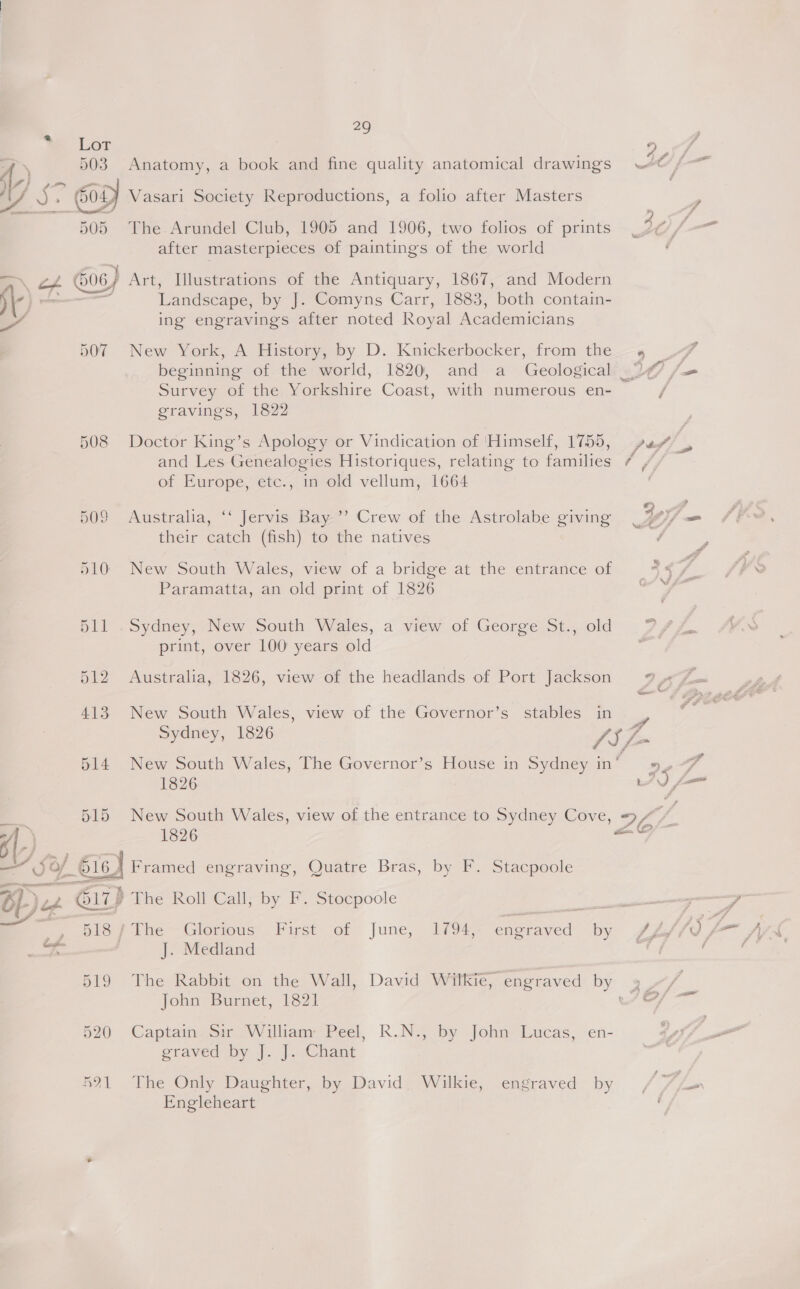 29
Lot
503 Anatomy, a book and fine quality anatomical drawings
504 Vasari Society Reproductions, a folio after Masters
505 The Arundel Club, 1905 and 1906, two folios of prints
after masterpieces of paintings of the world
506 Art, Illustrations of the Antiquary, 1867, and Modern
Landscape, by J. Comyns Carr, 1883, both contain-
ing engravings after noted Royal Academicians
507 New York, A History, by D. Knickerbocker, from the
beginning of the world, 1820, and a Geological
Survey of the Yorkshire Coast, with numerous en-
gravings, 1822
508 Doctor King's Apology or Vindication of Himself, 1755,
and Les Genealogies Historiques, relating to families
of Europe, etc., in old vellum, 1664
509 Australia, “ Jervis Bay ” Crew of the Astrolabe giving
their catch (fish) to the natives
510 New South Wales, view of a bridge at the entrance of
Paramatta, an old print of 1826
511 Sydney, New South Wales, a view of George St., old
print, over 100 years old
512 Australia, 1826, view of the headlands of Port Jackson
413 New South Wales, view of the Governor's stables in
Sydney, 1826
514 New South Wales, The Governor's House in Sydney in
1826
515 New South Wales, view of the entrance to Sydney Cove,
1826
516 Framed engraving, Quatre Bras, by F. Stacpoole
517 The Roll Call, by F. Stocpoole
518 The Glorious First of June, 1794, engraved by
J. Medland
519 The Rabbit on the Wall, David Wilkie, engraved by
John Burnet, 1821
520 Captain Sir William Peel, R.N., by John Lucas, en-
graved by J. J. Chant
521 The Only Daughter, by David Wilkie, engraved by
Engleheart